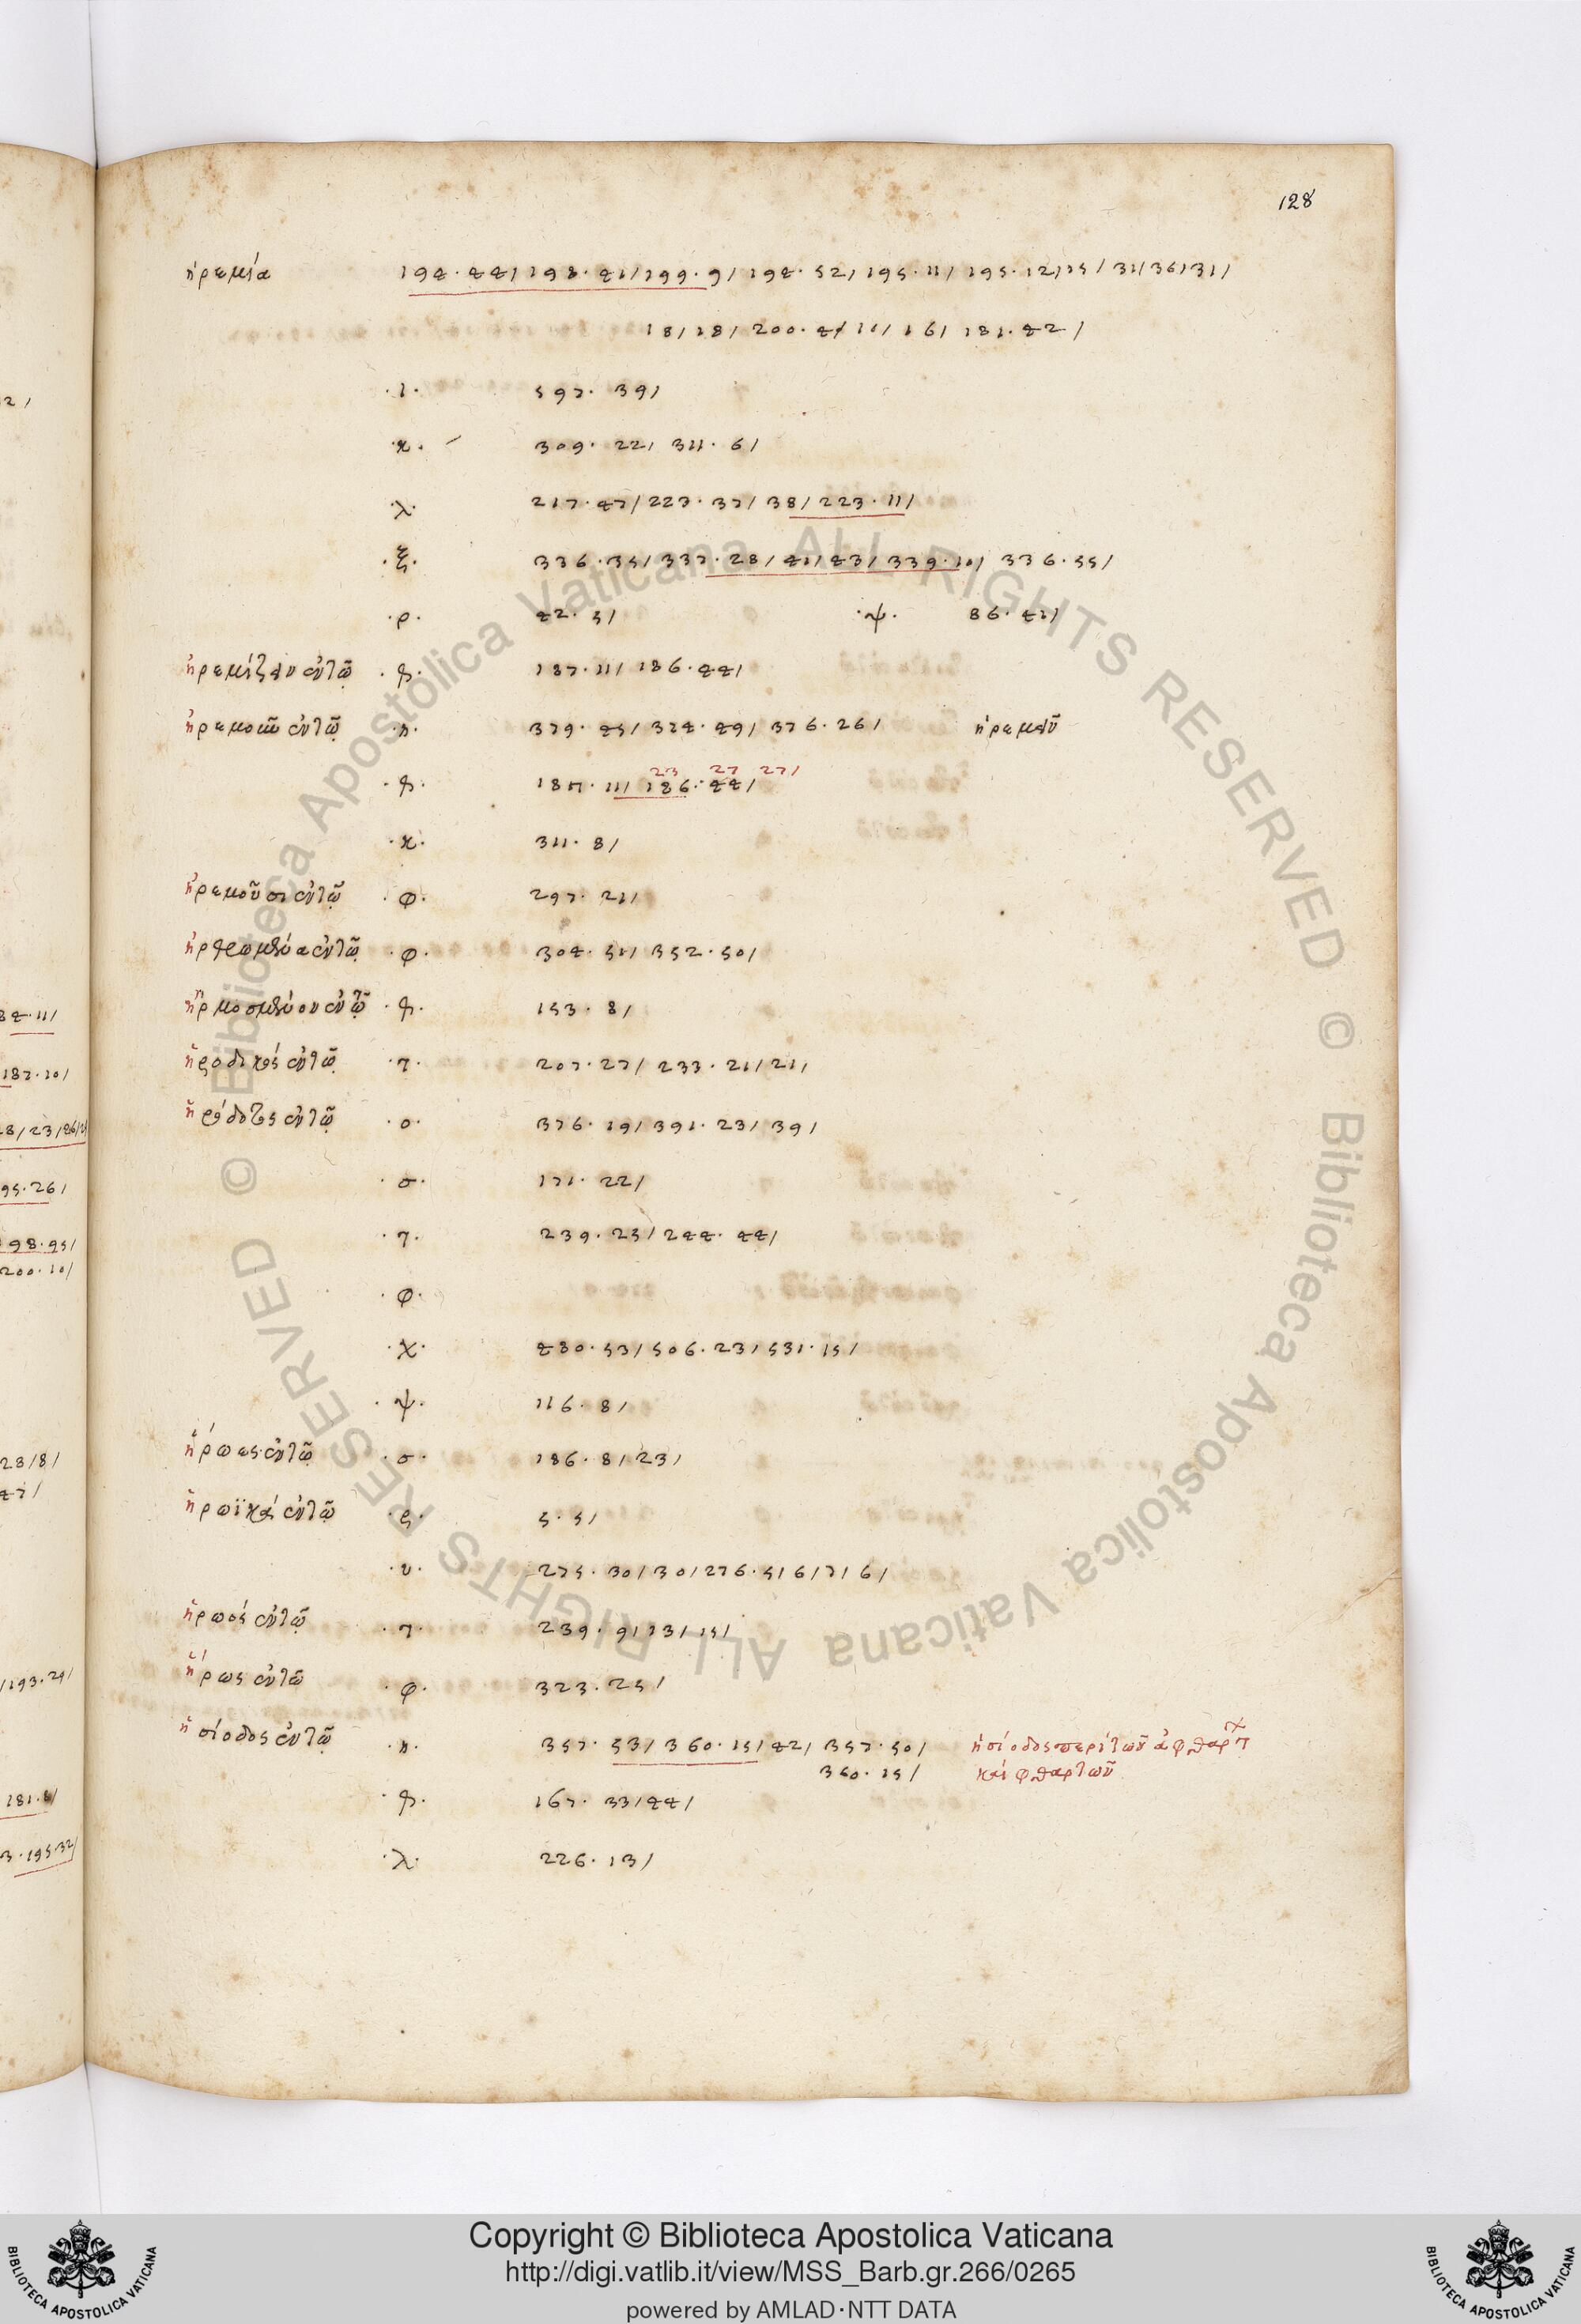 128
ἠρεμία 194·44/ 198·41/ 199·9/ 194·52/ 195·11/ 195·12/15/ 31/36/31/
18/ 18/ 200·4/ 11/ 16/ 181·42/
·ι· 597·39/
·κ· 309·22/ 311·6/
·λ· 217·47/ 223·37/ 38/ 223·11/
·ξ· 336·35/ 337·28/ 41/ 43/ 339·10/ 336·55/
·ρ· 42·5/ ·ψ· 86·41/
ἠρεμίζειν ἐν τῷ 187·11/ 186·44/
ἠρεμοῦν ἐν τῷ ·η· 379·45/ 374·49/ 376·26/ ἠρεμεῖν
23 27 27/
187·11/ 186·44/
·κ· 311·8/
ἠρεμοῦσι ἐν τῷ ·φ· 297·21/
ἠρτρωμένα ἐν τῷ ·φ· 304·51/ 352·50/
ἡρμοσμένον ἐν τῷ 153·8/
ἡροδικός ἐν τῷ ·τ· 207·27/ 233·21/21/
ἡρόδοτος ἐν τῷ ·ο· 376·19/ 391·23/ 39/
·σ· 171·22/
·τ· 239·23/ 244·44/
·φ·
·χ· 480·53/ 506·23/ 531·15/
·ψ· 116·8/
ἥρωες ἐν τῷ ·σ· 186·8/ 23/
ἡρωϊκά ἐν τῷ ·ς· 5·5/
·υ· 275·30/ 30/ 276·5/ 6/ 7/ 6/
ἡρωός ἐν τῷ ·τ· 239·9/ 13/ 15/
ἥρως ἐν τῷ ·φ· 323·25/
ἡσίοδος ἐν τῷ ·η· 357·53/ 360·15/ 42/ 357·50/ ἡσίοδος περὶ τῶν ἀφθάρτ
360·15/ καὶ φθαρτῶν
167·33/44/
·λ· 226·13/
Copyright © Biblioteca Apostolica Vaticana
http://digi.vatlib.it/view/MSS_Barb.gr.266/0265
powered by AMLAD·NTT DATA